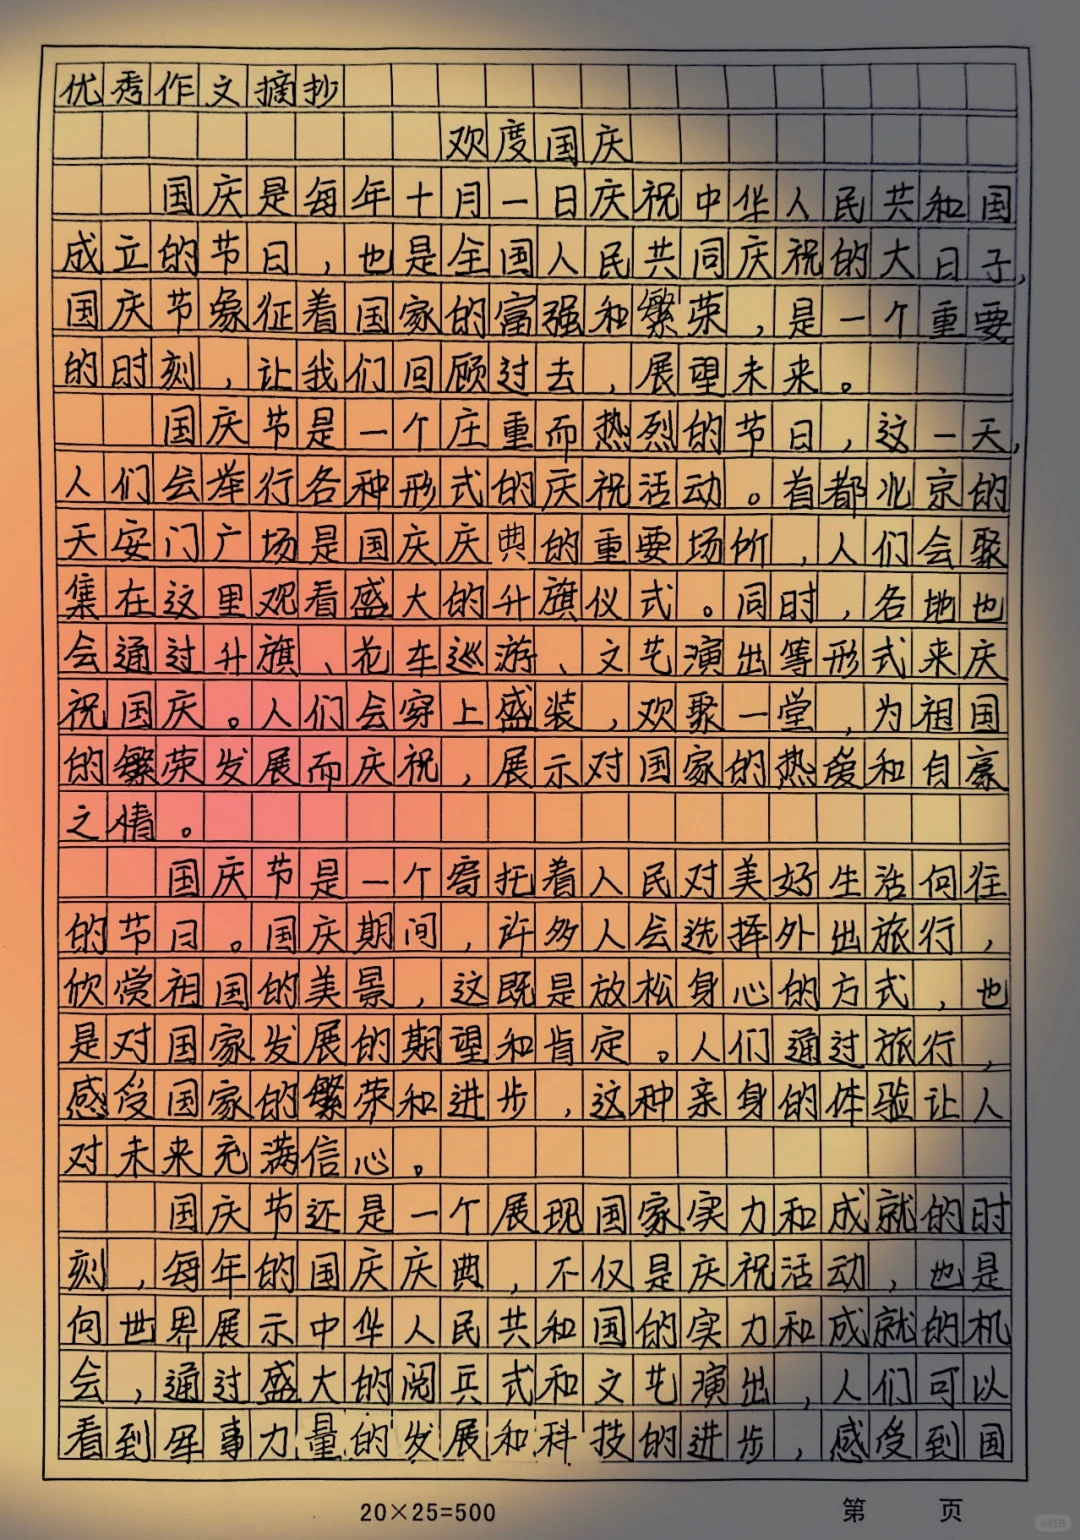 优秀作文摘抄
欢度国庆
国庆是每年十月一日庆祝中华人民共和国
成立的节日，也是全国人民共同庆祝的大日子，
国庆节象征着国家的富强和繁荣，是一个重要
的时刻，让我们回顾过去，展望未来。
国庆节是一个庄重而热烈的节日，这一天，
人们会举行各种形式的庆祝活动。首都北京的
天安门广场是国庆庆典的重要场所，人们会聚
集在这里观看盛大的升旗仪式。同时，各地也
会通过升旗、花车巡游、文艺演出等形式来庆
祝国庆。人们会穿上盛装，欢聚一堂，为祖国
的繁荣发展而庆祝，展示对国家的热爱和自豪
之情。
国庆节是一个寄托着人民对美好生活向往
的节日。国庆期间，许多人会选择外出旅行，
欣赏祖国的美景，这既是放松身心的方式，也
是对国家发展的期望和肯定。人们通过旅行，
感受国家的繁荣和进步，这种亲身的体验让人
对未来充满信心。
国庆节还是一个展现国家实力和成就的时
刻，每年的国庆庆典，不仅是庆祝活动，也是
向世界展示中华人民共和国的实力和成就的机
会，通过盛大的阅兵式和文艺演出，人们可以
看到军事力量的发展和科技的进步，感受到国
20×25=500
第 页